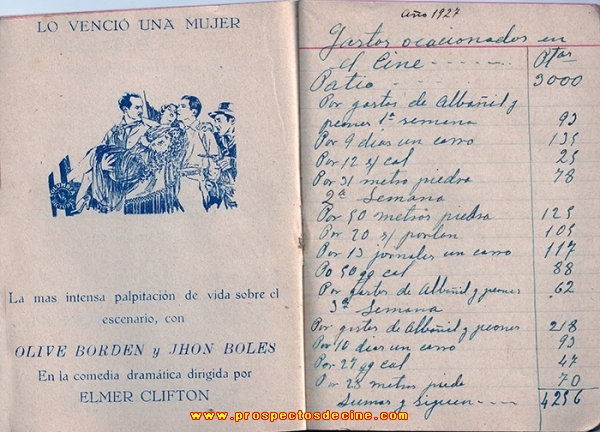 LO VENCIÓ UNA MUJER
La mas intensa palpitación de vida sobre el
escenario, con
OLIVE BORDEN y JHON BOLES
En la comedia dramática dirigida por
ELMER CLIFTON
Año 1927
Gastos ocacionados en
el Cine Ptas
Patio 3000
Por gastos de Albañil y
peones 1ª semana 93
Por 9 dias un carro 135
Por 12 s/ cal 25
Por 31 metro piedra 78
2ª Semana
Por 50 metros piedra 125
Por 20 s/ porlan 105
Por 13 jornales un carro 117
Po 50 qq cal 88
Por gastos de Albañil y peones 62
3ª Semana
Por gastos de Albañil y peones 218
Por 10 dias un carro 93
Por 27 qq cal 47
Por 28 metros piedra 70
Sumas y Siguen 4256
www.prospectosdecine.com